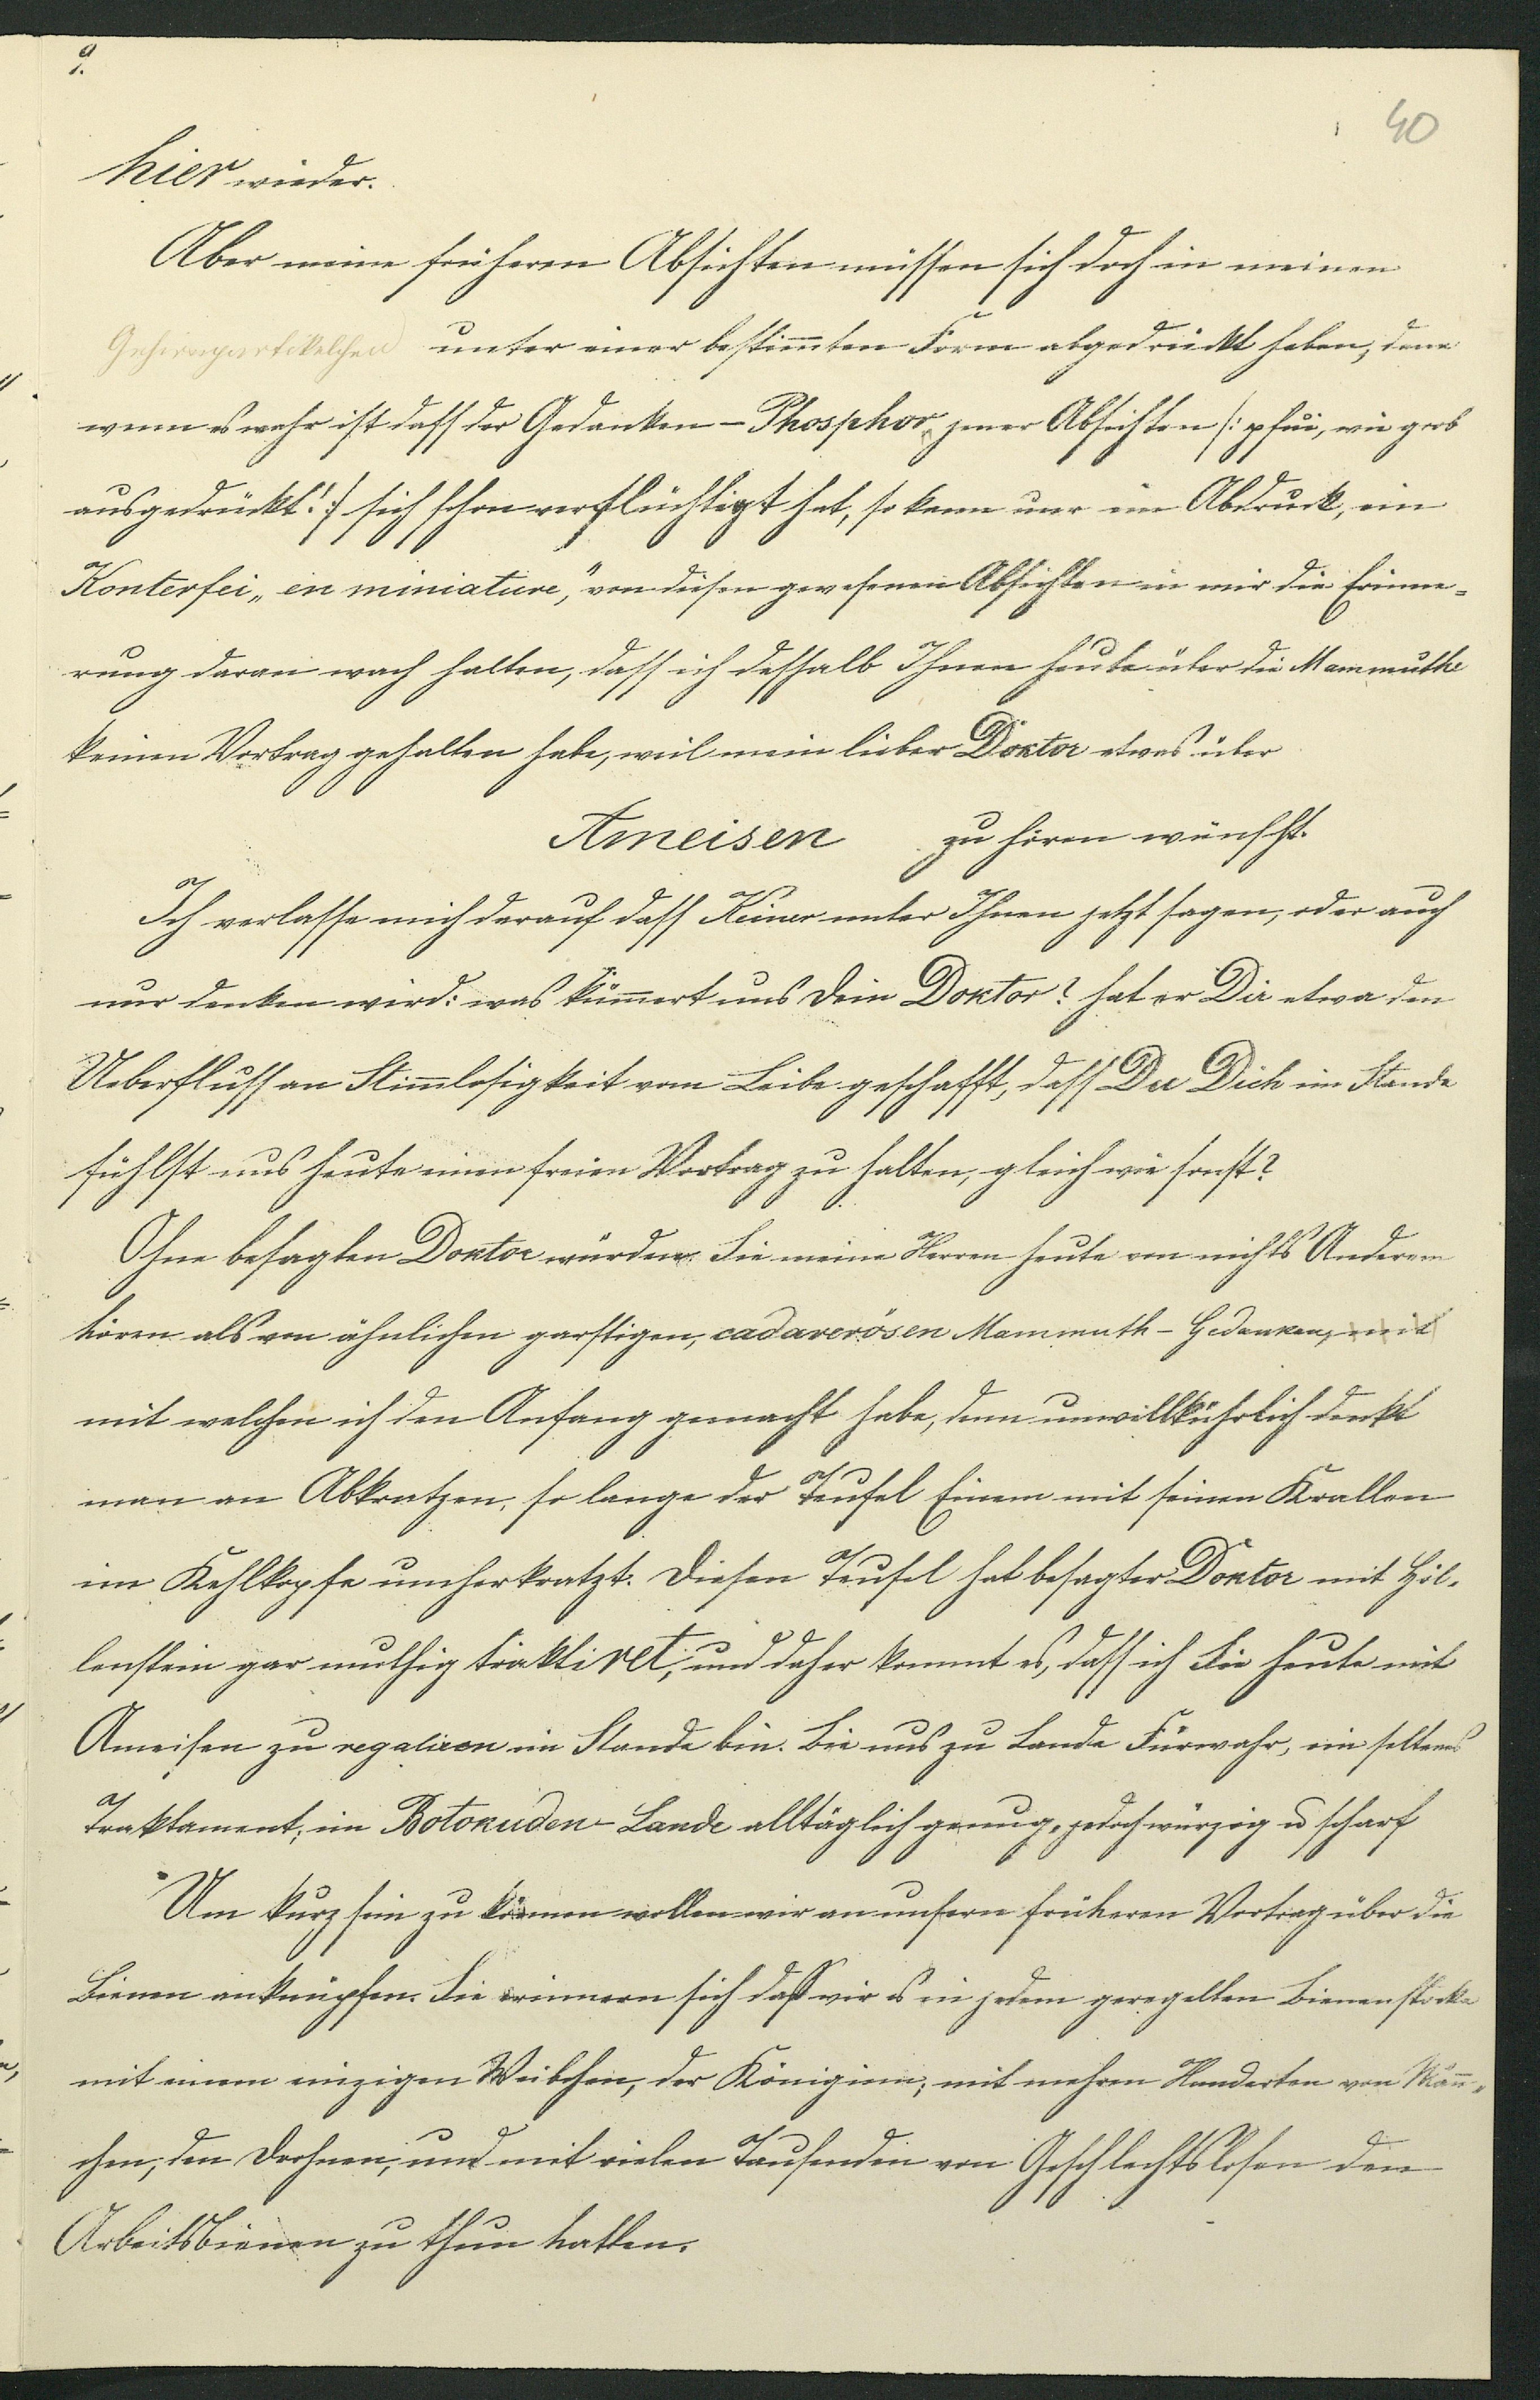 9.
40
hier wieder.
Aber meine früheren Absichten müssen sich doch in meinen
Gehirnpartikelchen unter einer bestim̄ten Form abgedrückt haben; denn
wenn es wahr ist dass der Gedanken-Phosphor jener Absichten /: pfui, wie grob
ausgedrückt! :/ sich schon verflüchtigt hat, so kann nur ein Abdruck, ein
Konterfei „en miniature“, von diesen gewesenen Absichten in mir die Erinne-
rung daran wach halten, dass ich desshalb Ihnen heute über die Mammuthe
keinen Vortrag gehalten habe, weil mein lieber Doktor etwas über
Ameisen zu hören wünscht.
Ich verlasse mich darauf dass Keiner unter Ihnen jetzt sagen, oder auch
nur denken wird: was küm̄ert uns Dein Doktor? hat er Dir etwa den
Ueberfluss an Stim̄losigkeit vom Leibe geschafft, dass Du Dich im Stande
fühlst uns heute einen freien Vortrag zu halten, gleich wie sonst?
Ohne besagten Doktor würden Sie meine Herren heute von nichts Anderem
hören als von ähnlichen garstigen, cadaverösen Mammuth-Gedanken, mit
mit welchen ich den Anfang gemacht habe, denn unwillkührlich denkt
man an Abkratzen, so lange der Teufel Einem mit seinen Krallen
im Kehlkopfe umherkratzt. Diesen Teufel hat besagter Doktor mit Höl-
lenstein gar muthig traktiret, und daher kommt es, dass ich Sie heute mit
Ameisen zu regaliren im Stande bin. Bei uns zu Lande Fürwahr, ein seltenes
Traktament; im Botokuden-Lande alltäglich genug, jedoch würzig u scharf
Um kurz sein zu können wollen wir an unsern früheren Vortrag über die
Bienen anknüpfen. Sie erinnern sich dass wir es in jedem geregelten Bienenstocke
mit einem einzigen Weibchen, der Königinn; mit mehren Hunderten von Män̄-
chen, den Drohnen; und mit vielen Tausenden von Geschlechtslosen den
Arbeitsbienen zu thun hatten.